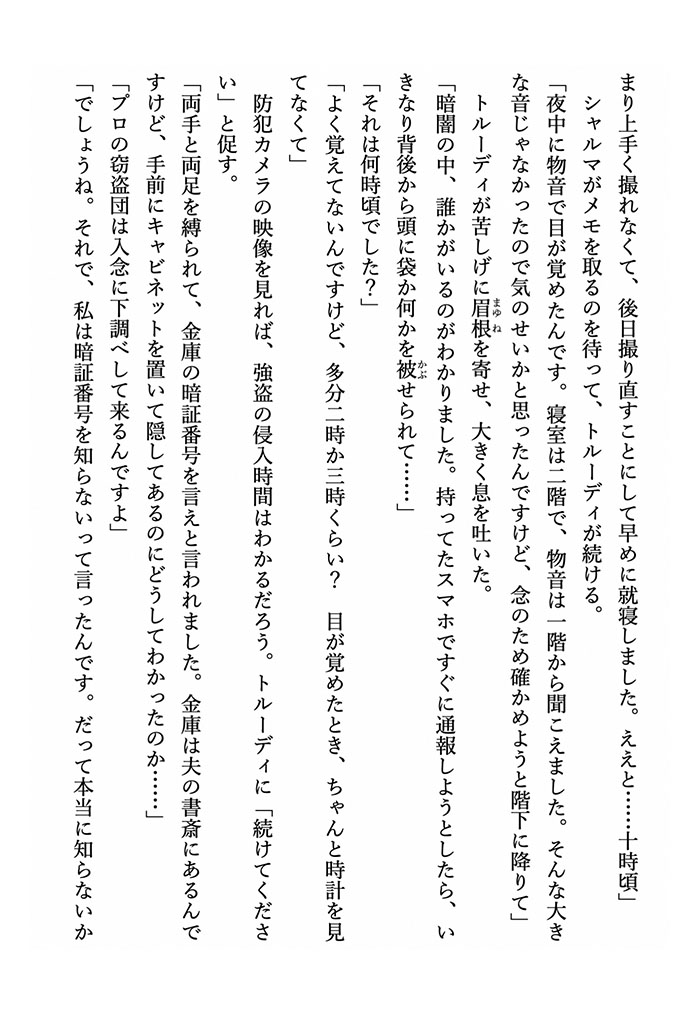 まり上手く撮れなくて、後日撮り直すことにして早めに就寝しました。ええと……十時頃」
　シャルマがメモを取るのを待って、トルーディが続ける。
「夜中に物音で目が覚めたんです。寝室は二階で、物音は一階から聞こえました。そんな大き
な音じゃなかったので気のせいかと思ったんですけど、念のため確かめようと階下に降りて」
　トルーディが苦しげに眉根まゆねを寄せ、大きく息を吐いた。
「暗闇の中、誰かがいるのがわかりました。持ってたスマホですぐに通報しようとしたら、い
きなり背後から頭に袋か何かを被かぶせられて……」
「それは何時頃でした？」
「よく覚えてないんですけど、多分二時か三時くらい？　目が覚めたとき、ちゃんと時計を見
てなくて」
　防犯カメラの映像を見れば、強盗の侵入時間はわかるだろう。トルーディに「続けてくださ
い」と促す。
「両手と両足を縛られて、金庫の暗証番号を言えと言われました。金庫は夫の書斎にあるんで
すけど、手前にキャビネットを置いて隠してあるのにどうしてわかったのか……」
「プロの窃盗団は入念に下調べして来るんですよ」
「でしょうね。それで、私は暗証番号を知らないって言ったんです。だって本当に知らないか